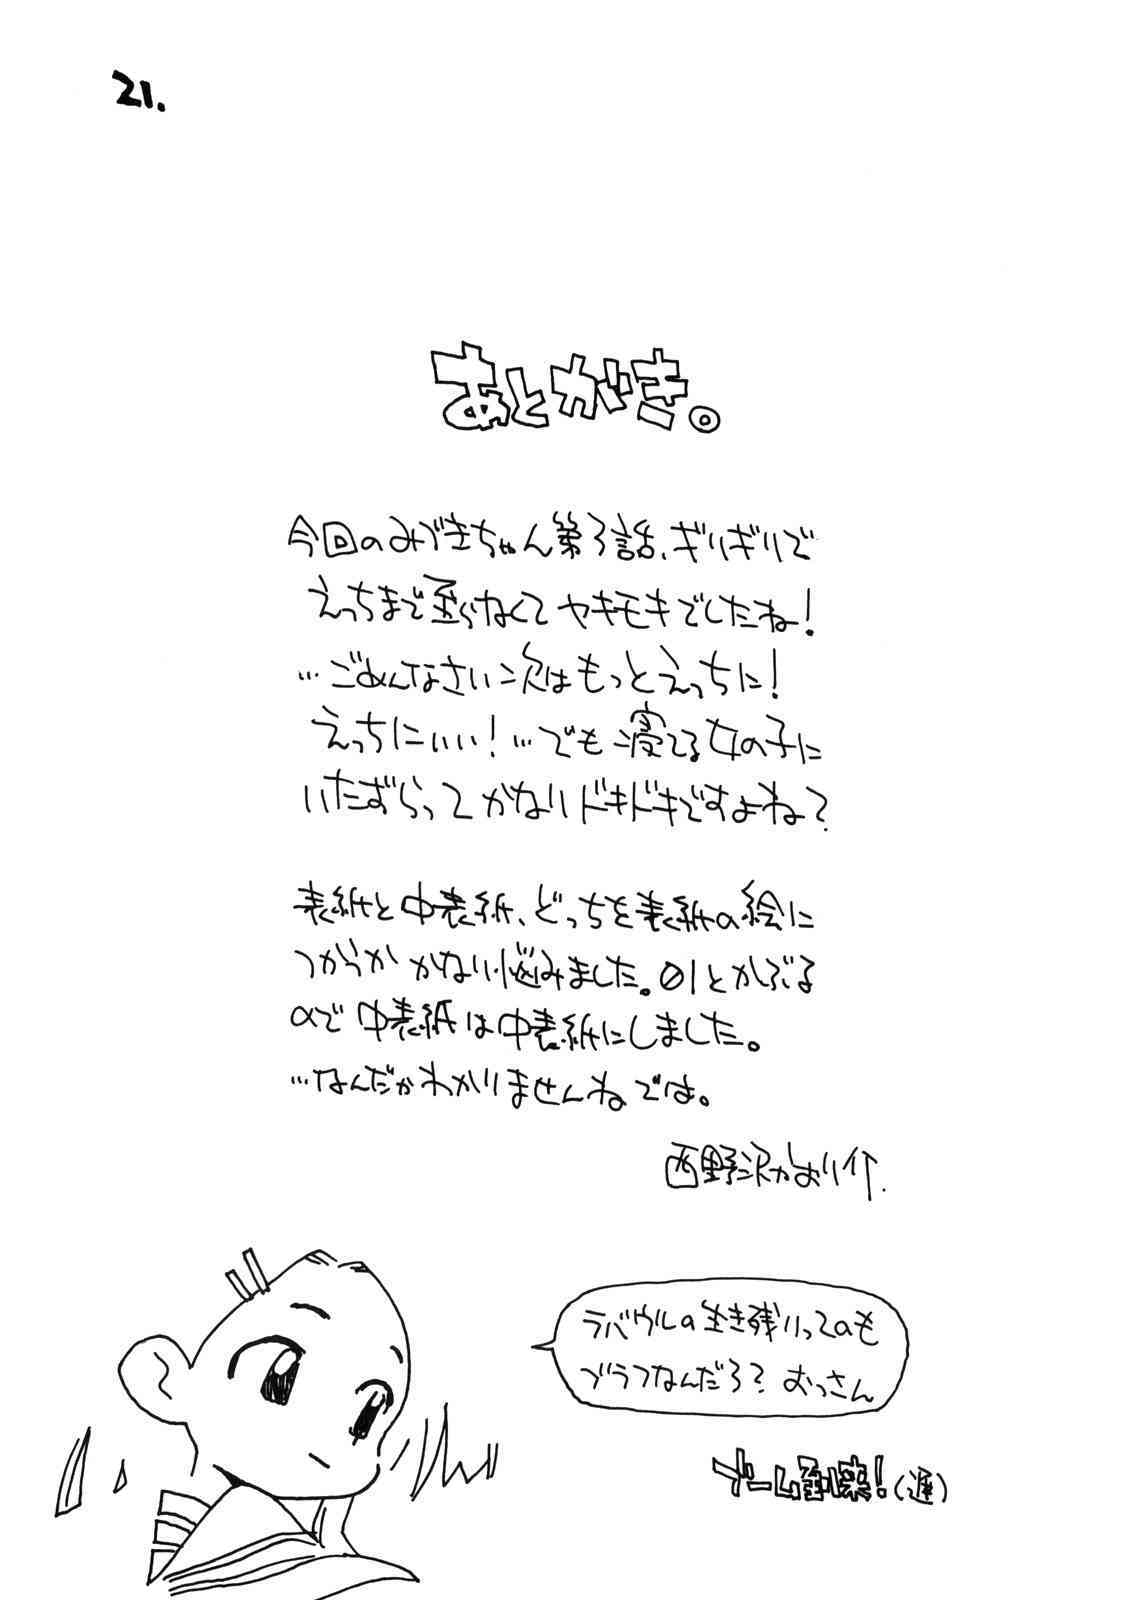 21.
あとがき。
今回のみづきちゃん第3話、ギリギリで
えっちまで至らなくてヤキモキでしたね!
…ごめんなさい次はもっとえっちに!
えっちにいい!…でも寝てる女の子に
いたずらってかなりドキドキですよね?
表紙と中表紙、どっちを表紙の絵に
つかうかかなり悩みました。01とかぶる
ので中表紙は中表紙にしました。
…なんだかわかりませんねでは。
西野次かおり介.
ラバウルの生き残りってのも
ブラフなんだろ?おっさん
ゲーム到来!(遅)